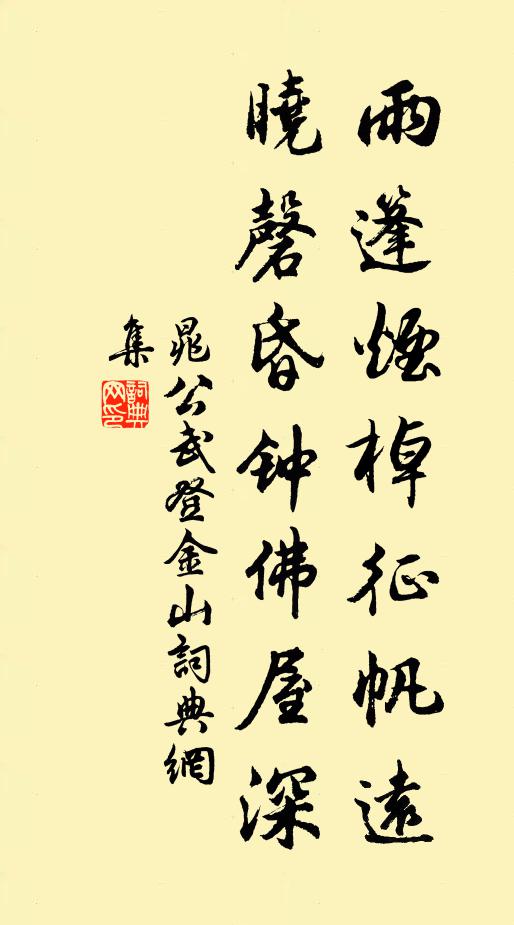 雨蓬煙棹征帆遠
曉磬昏钟佛屋深
晁公武登金山詞典網
集
詞典网印